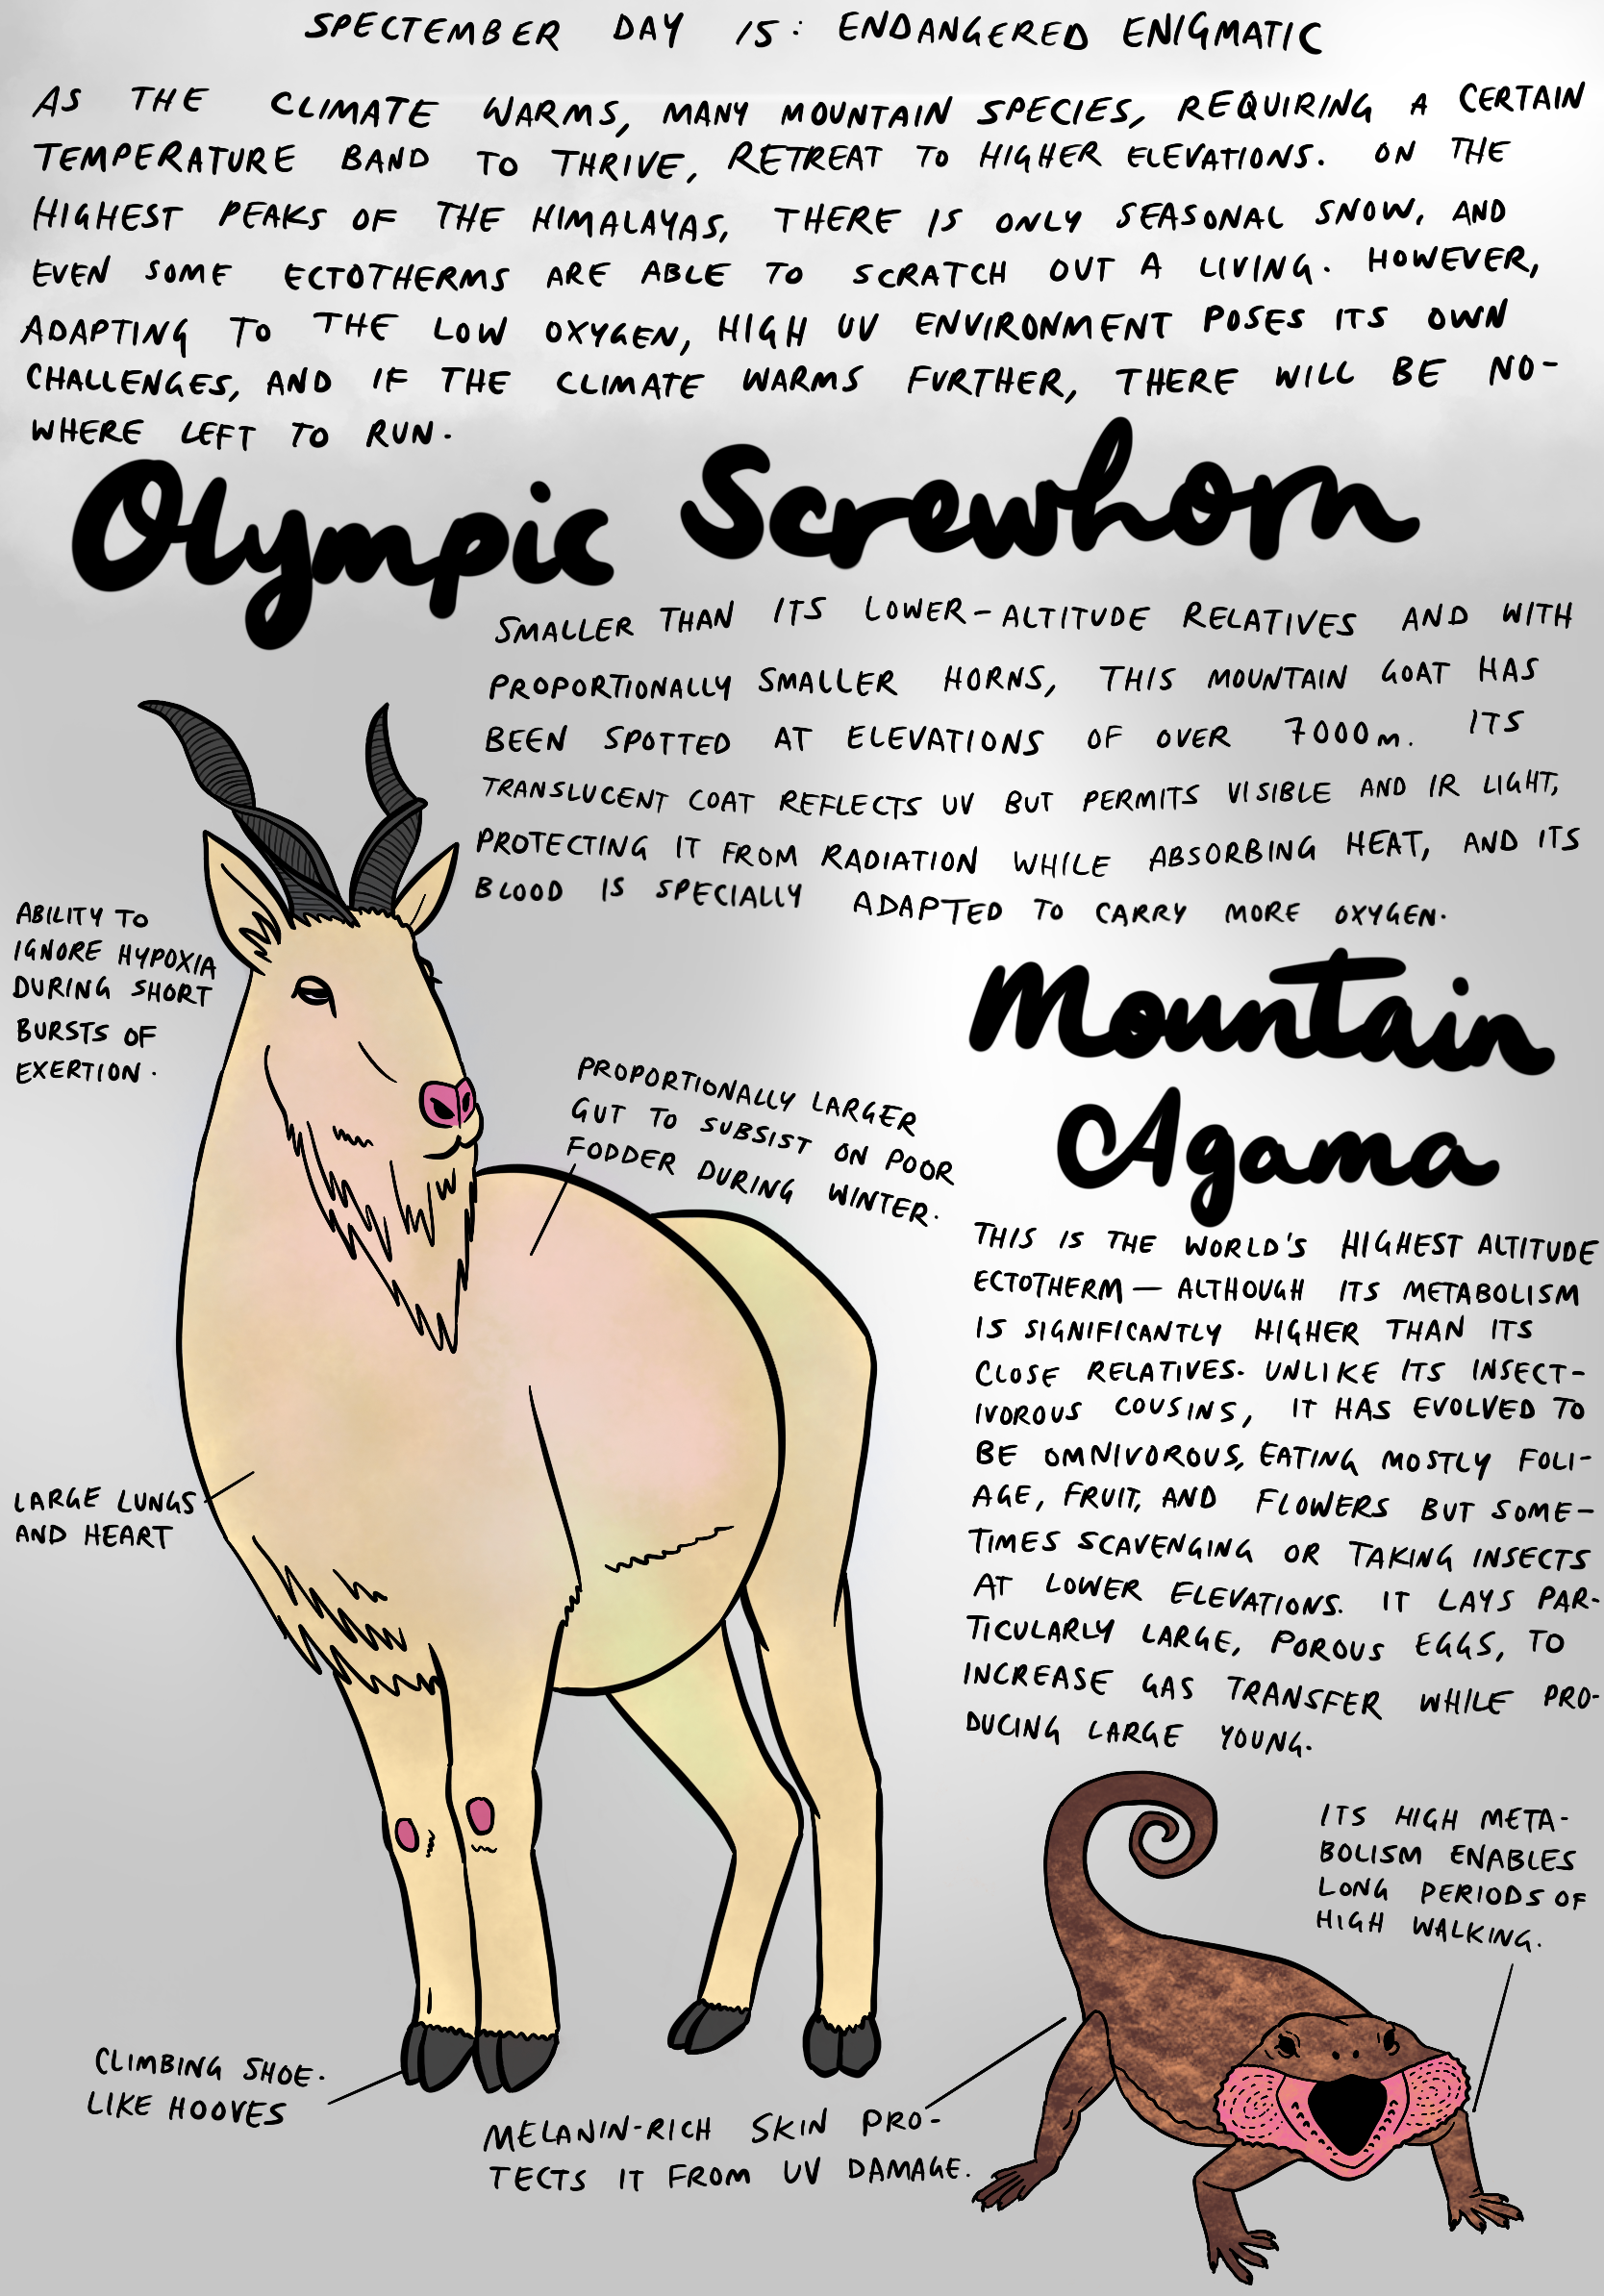 SPECTEMBER DAY 15: ENDANGERED ENIGMATIC
AS THE CLIMATE WARMS, MANY MOUNTAIN SPECIES, REQUIRING A CERTAIN
TEMPERATURE BAND TO THRIVE, RETREAT TO HIGHER ELEVATIONS. ON THE
HIGHEST PEAKS OF THE HIMALAYAS, THERE IS ONLY SEASONAL SNOW, AND
EVEN SOME ECTOTHERMS ARE ABLE TO SCRATCH OUT A LIVING. HOWEVER,
ADAPTING TO THE LOW OXYGEN, HIGH UV ENVIRONMENT POSES ITS OWN
CHALLENGES, AND IF THE CLIMATE WARMS FURTHER, THERE WILL BE NO-
WHERE LEFT TO RUN.
Olympic Screwhorn
SMALLER THAN ITS LOWER-ALTITUDE RELATIVES AND WITH
PROPORTIONALLY SMALLER HORNS, THIS MOUNTAIN GOAT HAS
BEEN SPOTTED AT ELEVATIONS OF OVER 7000m. ITS
TRANSLUCENT COAT REFLECTS UV BUT PERMITS VISIBLE AND IR LIGHT,
PROTECTING IT FROM RADIATION WHILE ABSORBING HEAT, AND ITS
BLOOD IS SPECIALLY ADAPTED TO CARRY MORE OXYGEN.
ABILITY TO
IGNORE HYPOXIA
DURING SHORT
BURSTS OF
EXERTION.
PROPORTIONALLY LARGER
GUT TO SUBSIST ON POOR
FODDER DURING WINTER.
LARGE LUNGS
AND HEART
CLIMBING SHOE-
LIKE HOOVES
Mountain
Agama
THIS IS THE WORLD'S HIGHEST ALTITUDE
ECTOTHERM — ALTHOUGH ITS METABOLISM
IS SIGNIFICANTLY HIGHER THAN ITS
CLOSE RELATIVES. UNLIKE ITS INSECT-
IVOROUS COUSINS, IT HAS EVOLVED TO
BE OMNIVOROUS, EATING MOSTLY FOLI-
AGE, FRUIT, AND FLOWERS BUT SOME-
TIMES SCAVENGING OR TAKING INSECTS
AT LOWER ELEVATIONS. IT LAYS PAR-
TICULARLY LARGE, POROUS EGGS, TO
INCREASE GAS TRANSFER WHILE PRO-
DUCING LARGE YOUNG.
ITS HIGH META-
BOLISM ENABLES
LONG PERIODS OF
HIGH WALKING.
MELANIN-RICH SKIN PRO-
TECTS IT FROM UV DAMAGE.